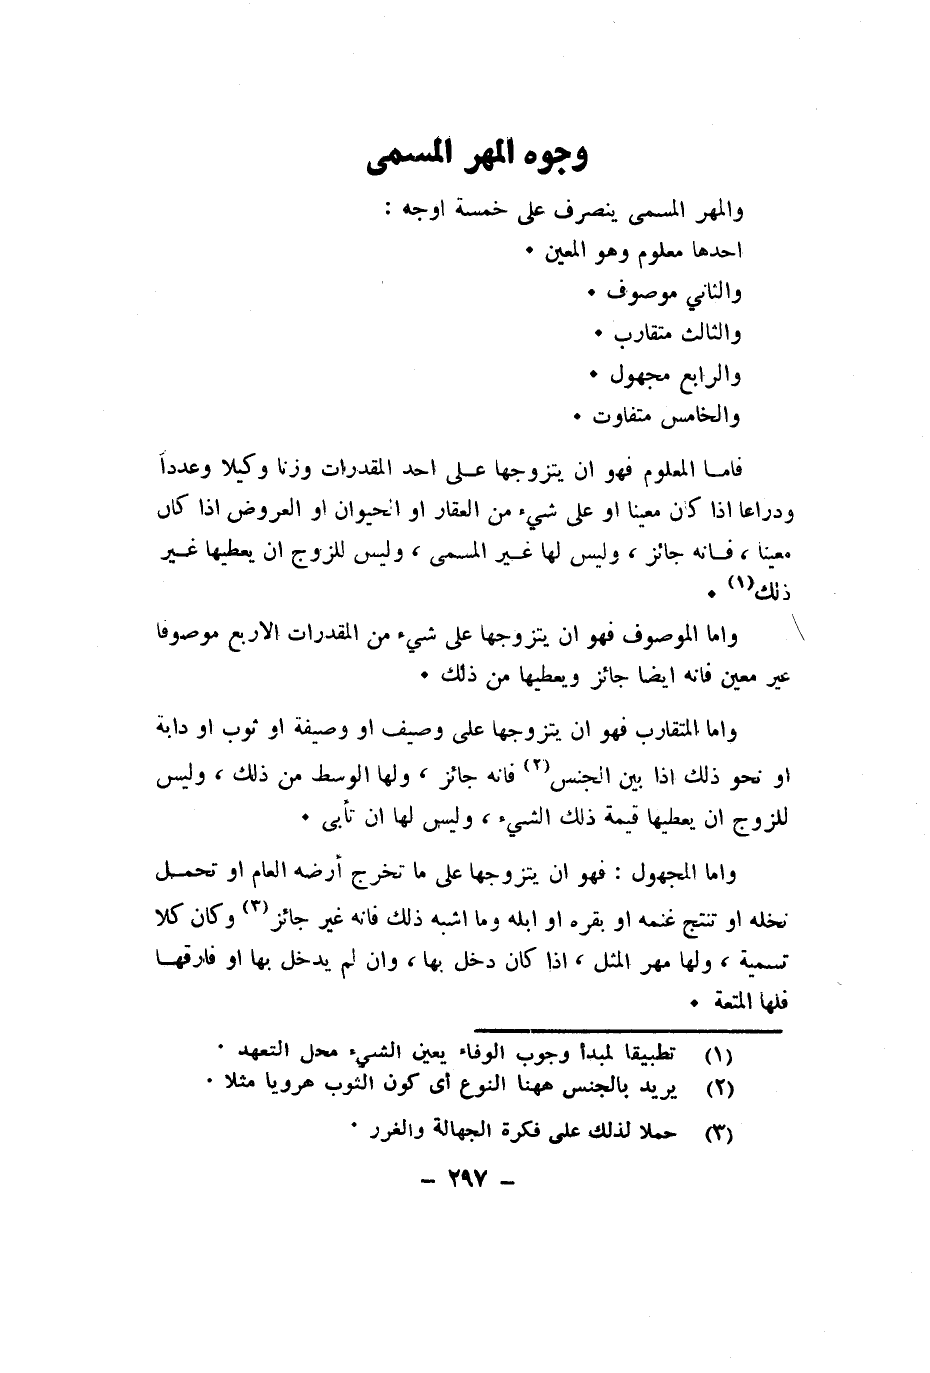 وجوه المهر المسمى
والمهر المسمى ينصرف على خمسة اوجه :
احدها معلوم وهو المعين ٠
والثاني موصوف ٠
والثالث متقارب ٠
والرابع مجهول ٠
والخامس متفاوت ٠
فامـا المعلوم فهو ان يتزوجها عـلى احد المقدرات وزنا وكيلا وعدداً
ودراعا اذا كان معينا او على شيء من العقار او الحيوان او العروض اذا كان
معينا ، فـانه جائز ، وليس لها غـير المسمى ، وليس للزوج ان يعطيها غـير
ذلك(١) ٠
واما الموصوف فهو ان يتزوجها على شيء من المقدرات الاربع موصوفا
عير معين فانه ايضا جائز ويعطيها من ذلك ٠
واما المتقارب فهو ان يتزوجها على وصيف او وصيفة او ثوب او دابة
او نحو ذلك اذا بين الجنس(٢) فانه جائز ، ولها الوسط من ذلك ، وليس
للزوج ان يعطيها قيمة ذلك الشيء ، وليس لها ان تأبى ٠
واما المجهول : فهو ان يتزوجها على ما تخرج أرضه العام او تحمـل
نخله او تنتج غنمه او بقره او ابله وما اشبه ذلك فانه غير جائز(٣) وكان كلا
تسمية ، ولها مهر المثل ، اذا كان دخل بها ، وان لم يدخل بها او فارقهـا
فلها المتعة ٠
(١) تطبيقا لمبدأ وجوب الوفاء يعين الشيء محل التعهد ٠
(٢) يريد بالجنس ههنا النوع أى كون الثوب هرويا مثلا ٠
(٣) حملا لذلك على فكرة الجهالة والغرر ٠
– ٢٩٧ –